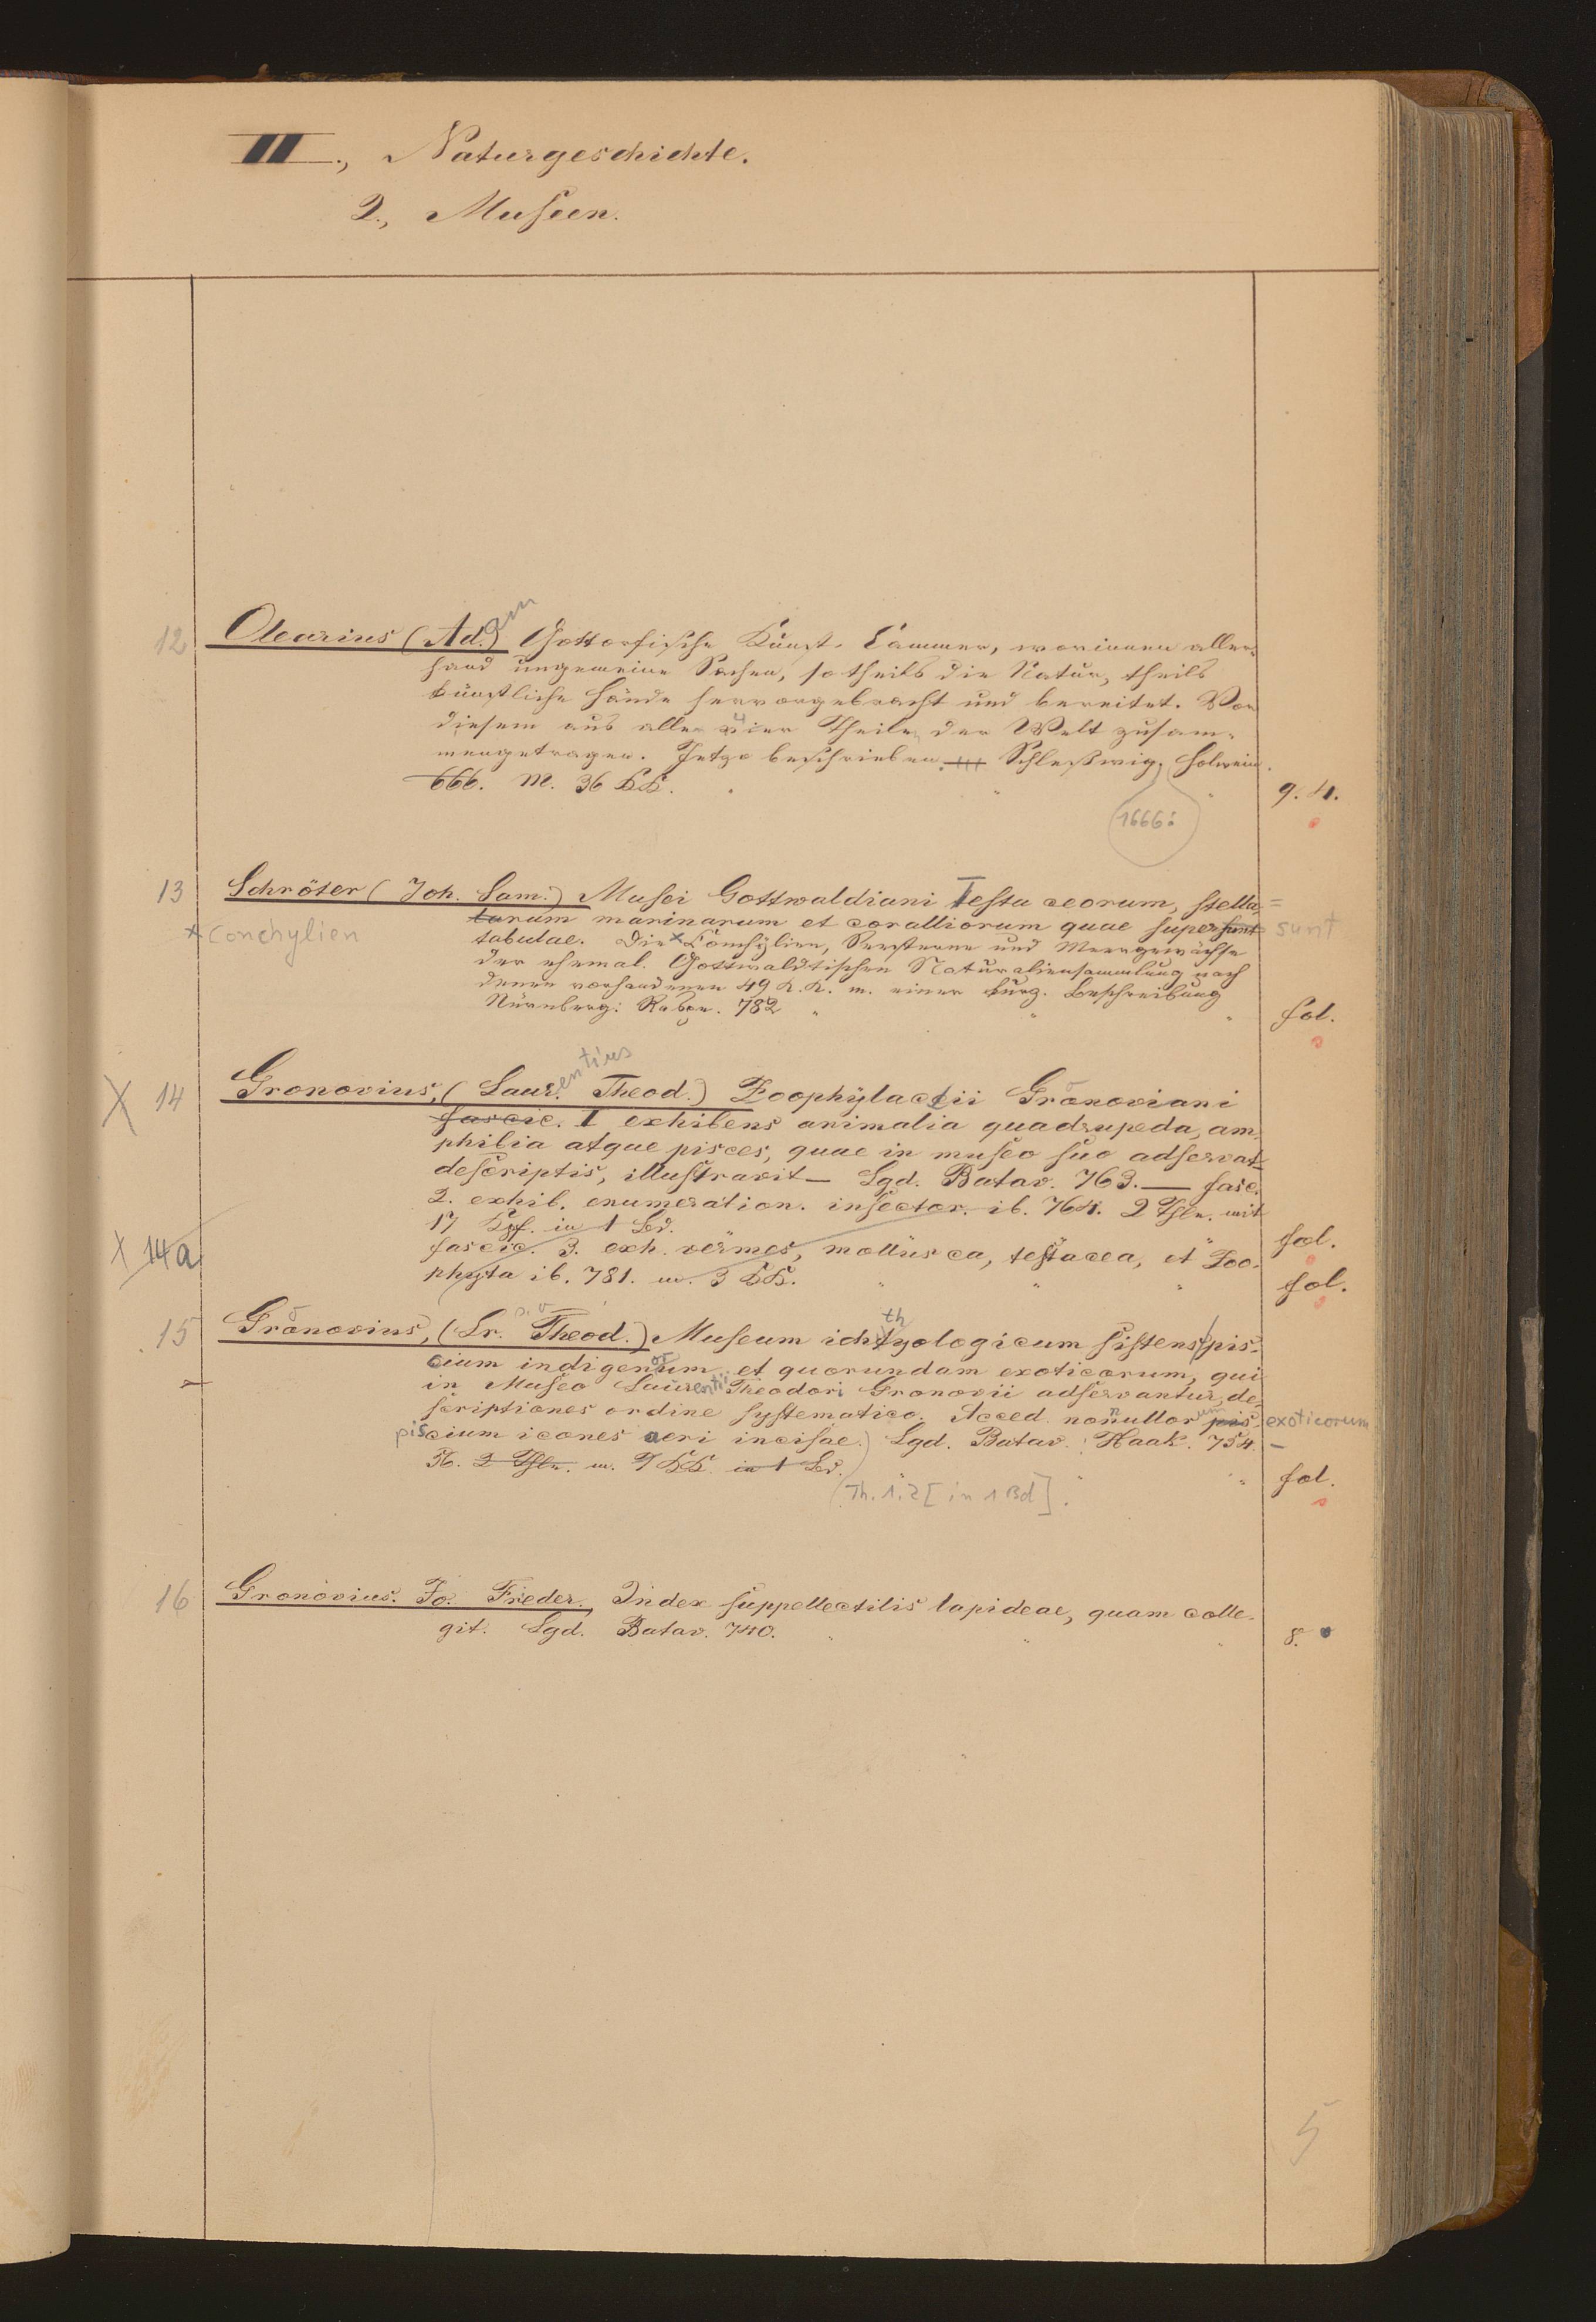 III., Naturgeschichte.
2., Museen.
12 Olearius (Ad.) am Gottorfische Kunst-Cammer, worinnen aller-
hand ungemeine Sachen, so theils die Natur, theils
künstliche Hände hervorgebracht und bereitet. Vor
diesem aus allen vier Theilen der Welt zusam-
mengetragen. Jetzo beschrieben Schleßwig, Holwein.
666. M. 36 KK. 9. 4.
1666:
13 Schröter (Joh. Sam.) Musei Gottwaldiani Testaceorum, stella=
tarum marinarum et coralliorum quae supersunt sunt
x Conchylien
tabulae. Die x Conchylien, Seesterne und Meergewächse
der ehemal. Gottwaldtischen Naturaliensammlung nach
denen vorhandenen 49 K.K. m. einer kurz. Beschreibung
Nürnberg: Raspe. 782 " " " fol.
X 14 Gronovius, (Laur.entius Theod.) Zoophylacii Gronoviani
fascic. I exhibens animalia quadrupeda, am-
phibia atque pisces, quae in museo suo adservat
descriptis, illustravit — Lgd. Batav. 763. — fasc.
2. exhib. enumeration. insector. ib. 764. 2 Thle. mit
17 Kpf. in 1 Bd. fol.
X 14a fascic. 3. exh. vermes, mollusca, testacea, et Zoo-
phyta ib. 781. m. 3 KK. " " " fol.
15 Gronovius, (Lr. Theod.) Museum ichthyologicum sistens pis-
cium indigenorum et quorundam exoticorum, qui
in Museo Laurentii Theodori Gronovii adservantur, de-
scriptiones ordine systematico. Acced. nonnullorum pis- exoticorum
piscium icones aeri incisae.) Lgd. Batav.: Haak. 754. -
56. 2 Thle. m. 7 KK. in 1 Bd. fol.
(Th. 1. 2 [in 1 Bd].
16 Gronovius. Jo. Frieder. Index suppellectilis lapideae, quam colle-
git. Lgd. Batav. 740. " " " 8.
5